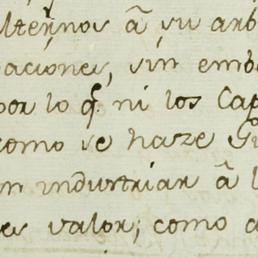 lternos â su arb
paciones, sin emb
por lo q. ni los Cap
como se haze Gu
n industriar â l
es valor; como a